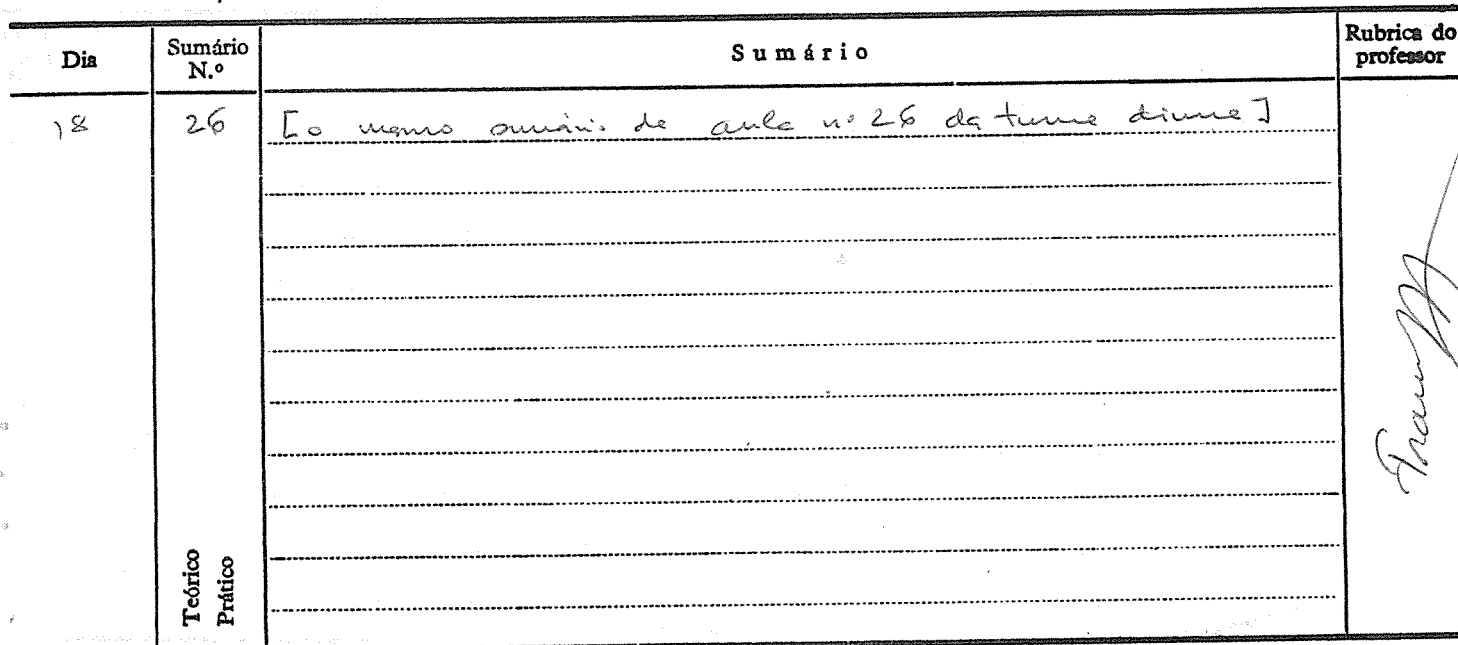 Dia
Sumário N.º
Sumário
Rubrica do professor
18
26
[o mesmo sumário da aula nº 26 da turma diurna]
Teórico
Prático